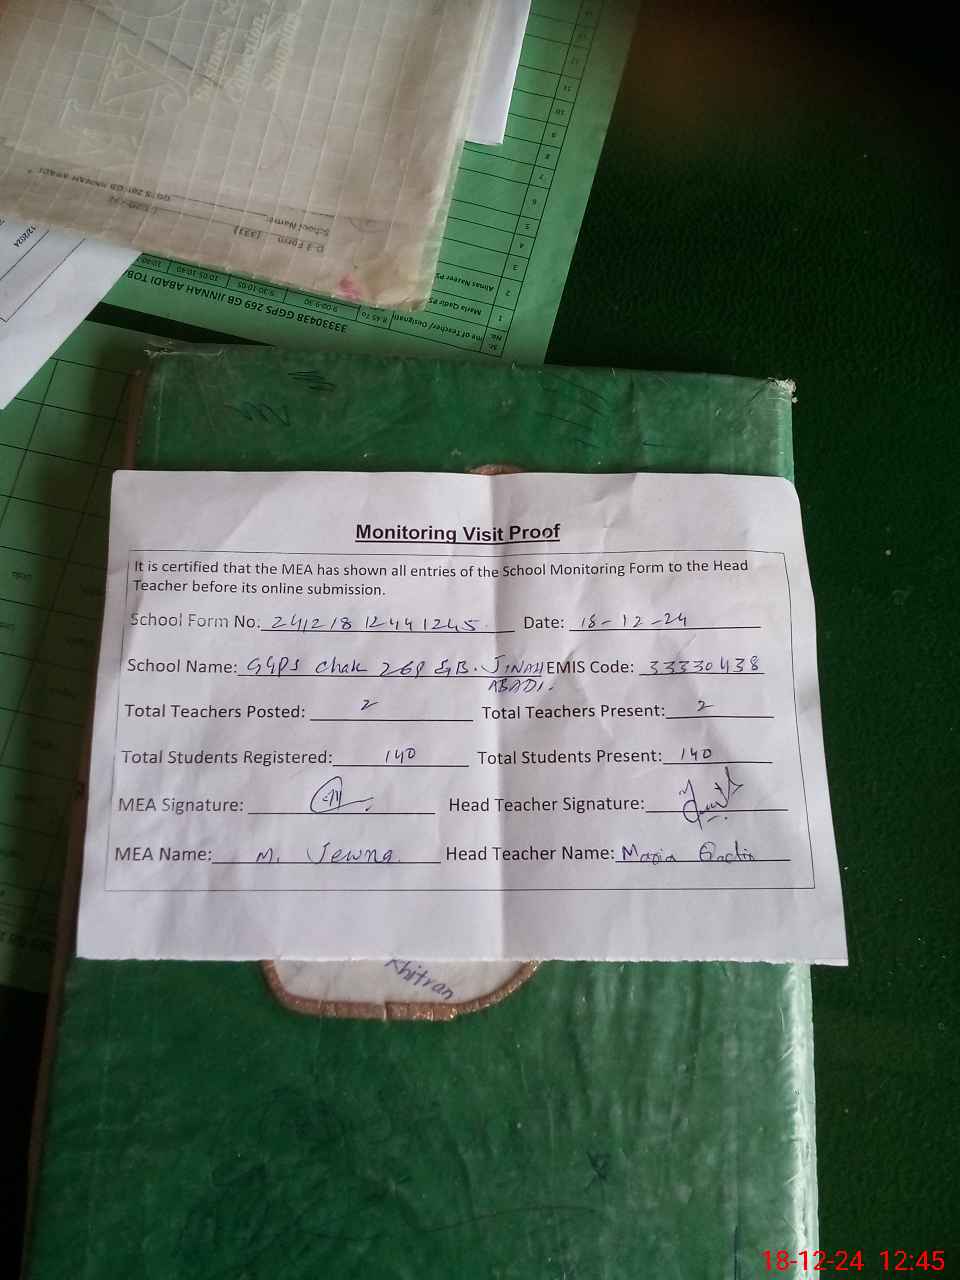 D-3 Form (333)
School Name:
33330438 GGPS 269 GB JINNAH ABADI TOB
9:00-9:30
9:30-10:05
10:05-10:40
Sr. No.
1
Maria Qadir PS
2
3
4
5
6
7
8
9
10
11
12/2024
Monitoring Visit Proof
It is certified that the MEA has shown all entries of the School Monitoring Form to the Head
Teacher before its online submission.
School Form No: 24121812441245 Date: 18-12-24
School Name: GGPS Chak 269 GB. JINAH EMIS Code: 33330438
ABADI.
Total Teachers Posted: 2 Total Teachers Present: 2
Total Students Registered: 140 Total Students Present: 140
MEA Signature: Head Teacher Signature:
MEA Name: M. Head Teacher Name: Maria
Khitran
18-12-24 12:45